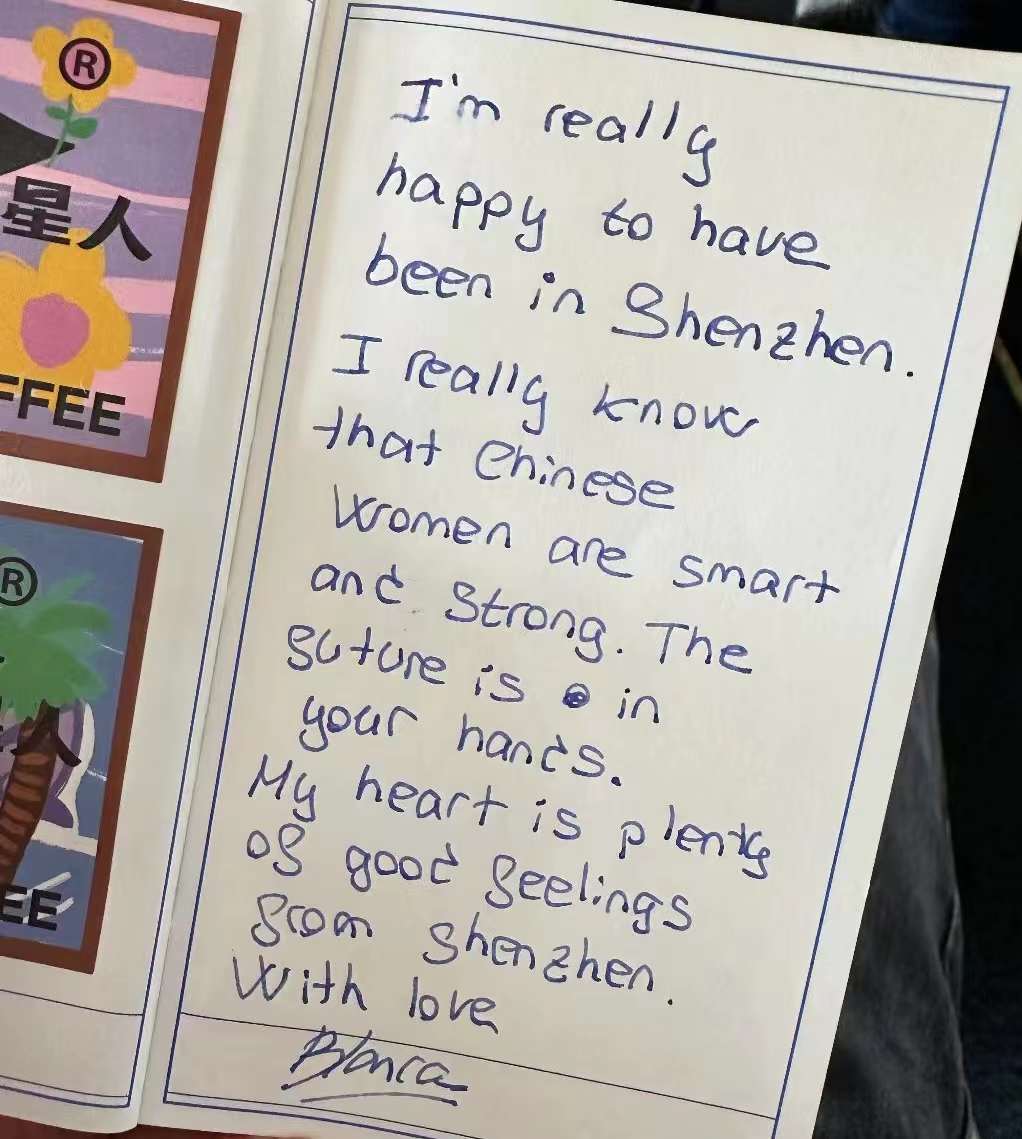 ®
星人
FFEE
®
人
EE
I'm really
happy to have
been in Shenzhen.
I really know
that Chinese
Women are smart
and strong. The
future is in
your hands.
My heart is plenty
of good feelings
from Shenzhen.
With love
Blanca